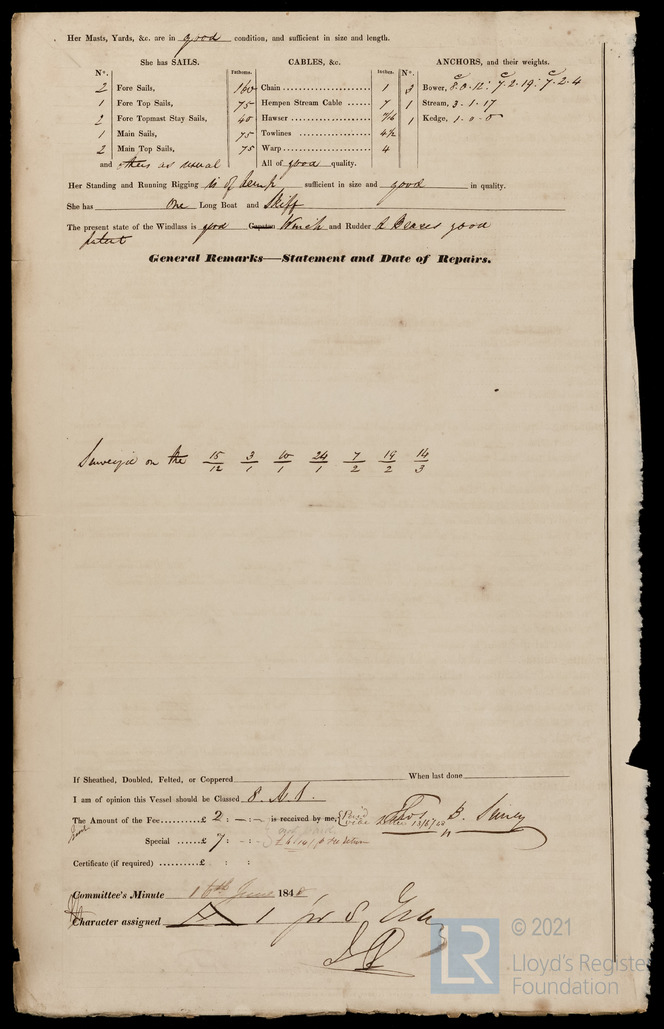 Her Masts, Yards, &c. are in good condition, and sufficient in size and length.
She has SAILS. CABLES, &c. ANCHORS, and their weights.
N°. Fathoms. Inches. N°.
2 Fore Sails, 160 Chain 1 3 Bower, 8.0.12: 7.2.19: 7.2.4
1 Fore Top Sails, 75 Hempen Stream Cable 7 1 Stream, 3.1.17
2 Fore Topmast Stay Sails, 40 Hawser 1 Kedge, 1.0.0
1 Main Sails, 75 Towlines 4½
2 Main Top Sails, 75 Warp 4
and others as usual All of good quality.
Her Standing and Running Rigging is of hemp sufficient in size and good in quality.
She has One Long Boat and Skiff
The present state of the Windlass is good Capstan Winch and Rudder good
patent
General Remarks—Statement and Date of Repairs.
Survey'd on the 15/12 3/1 10/1 24/1 7/2 19/2 14/3
If Sheathed, Doubled, Felted, or Coppered When last done
I am of opinion this Vessel should be Classed 8. A 1.
The Amount of the Fee £ 2 : - : - is received by me,
Special £ 7 : - : -
Certificate (if required) £ : :
Committee's Minute 16th June 184
Character assigned A 1 for 8
© 2021
LR Lloyd's Register
Foundation